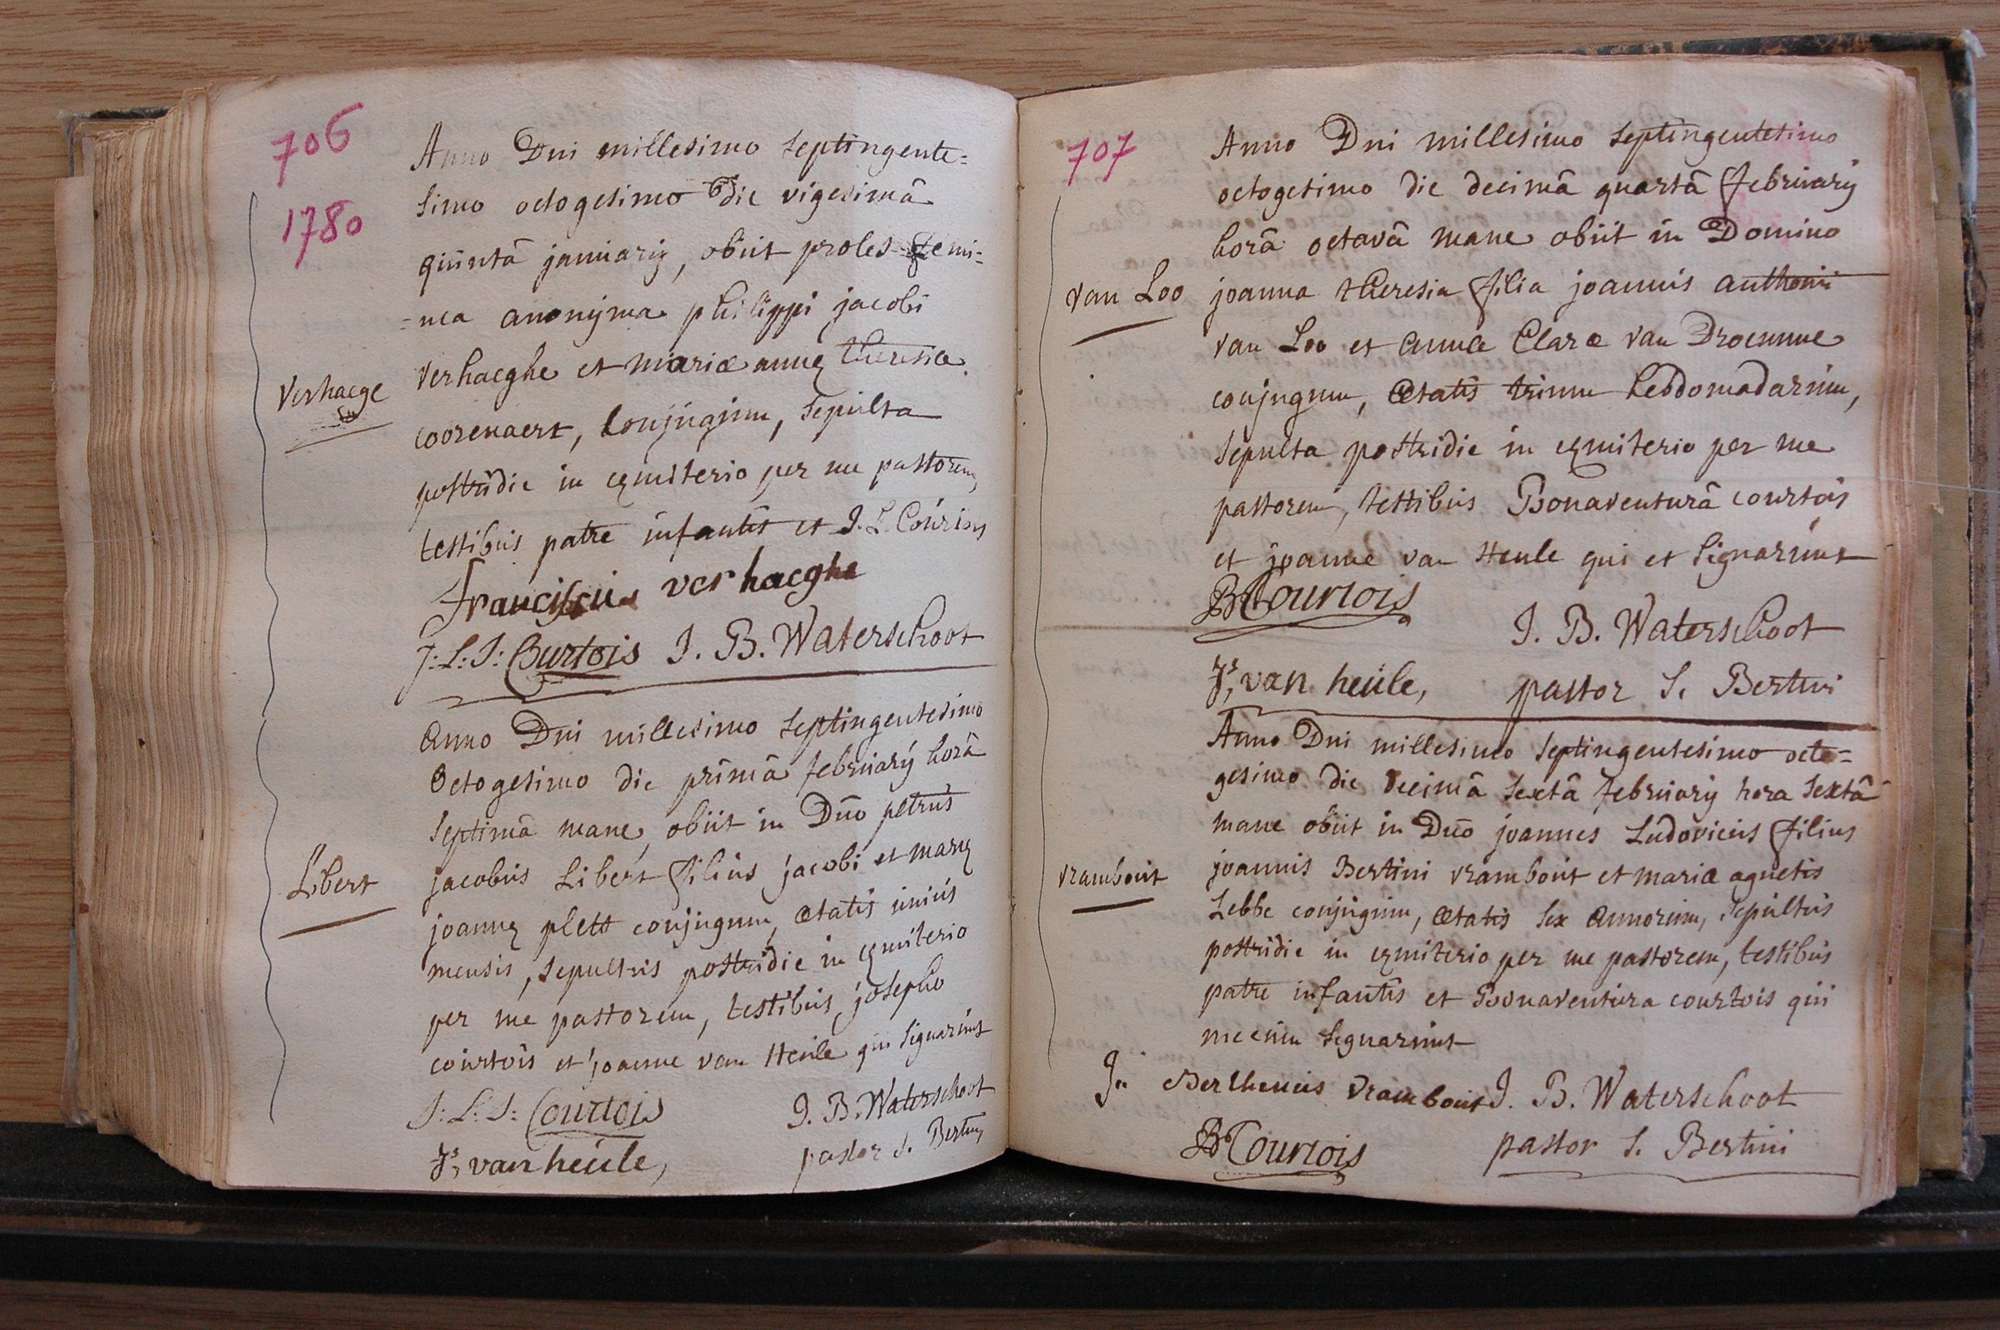 706
1780
Anno Dni millesimo septingente=
simo octogesimo die vigesimâ
quintâ januarij, obiit proles femi=
=nea anonijma philippi jacobi
Verhaege
verhaeghe et mariæ annę theresiæ
coorenaert, conjugum, sepulta
postridie in cęmiterio per me pastorem,
testibus patre infantis et J. L. Courtois
Franciscus verhaeghe
J: L: J: Courtois J. B. Waterschoot
Anno Dni millesimo septingentesimo
octogesimo die primâ februarij horâ
septimâ mane, obiit in Dno petrus
Libert
jacobus Libert filius jacobi et marię
joannę plett conjugum, ætatis unius
mensis, sepultus postridie in cęmiterio
per me pastorem, testibus josepho
courtois et joanne van Heule qui signarunt
J: L: J: Courtois J. B. Waterschoot
Js, van heule, pastor S. Bertini
707
Anno Dni millesimo septingentesimo
octogesimo die decimâ quartâ februarij
horâ octavâ mane obiit in Domino
van Loo
joanna theresia filia joannis anthonii
van Loo et annæ Claræ van Droemme
conjugum, ætatis trium hebdomadarum,
sepulta postridie in cęmiterio per me
pastorem, testibus Bonaventurâ courtois
et joanne van Heule qui et signarunt
B Courtois
J. B. Waterschoot
Js, van heule, pastor S. Bertini
Anno Dni millesimo septingentesimo octo=
gesimo die decimâ sextâ februarij hora sextâ
mane obiit in Dno joannes Ludovicus filius
vrambout
joannis Bertini vrambout et mariæ agnetis
Lebbe conjugum, ætatis sex annorum, sepultus
postridie in cęmiterio per me pastorem, testibus
patre infantis et Bonaventura courtois qui
mecum signarunt
Berthenus vrambout J. B. Waterschoot
B Courtois pastor S. Bertini